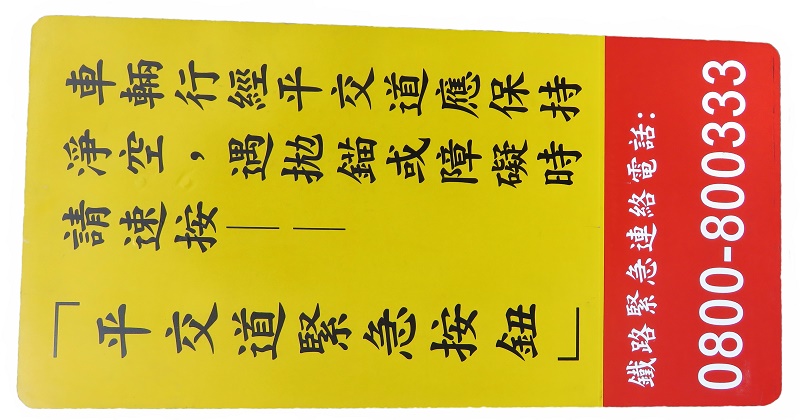 車輛行經平交道應保持
淨空，遇拋錨或障礙時
請速按——
「平交道緊急按鈕」
鐵路緊急連絡電話:
0800-800333